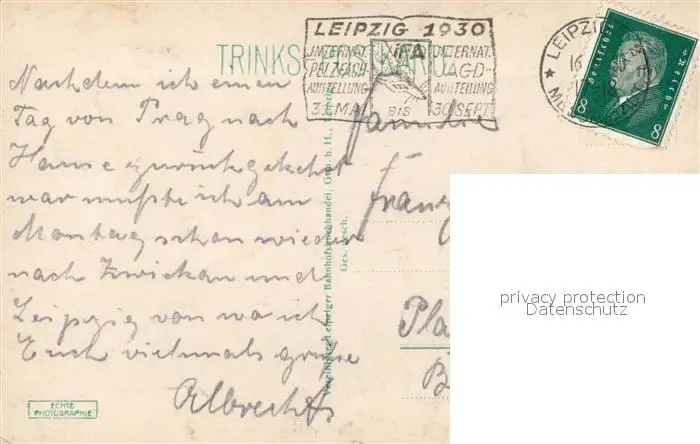 LEIPZIG 1930
INTERNAT. PELZFACH- AUSSTELLUNG
IPA
INTERNAT. JAGD- AUSSTELLUNG
31. MAI BIS 30. SEPT.
TRINKS KARTE
LEIPZIG
16
8 8
Nachdem ich einen
Tag von Prag nach
Hause zurückgekehrt
war mußte ich am
Montag schon wieder
nach Zwickau und
Leipzig von wo ich
Euch vielmals grüße
Albrecht
Familie
Franz
Pla
B
Vereinigter Leipziger Bahnhofsbuchhandel, G.m.b.H., Leipzig
Ges. Gesch.
ECHTE
PHOTOGRAPHIE
privacy protection
Datenschutz